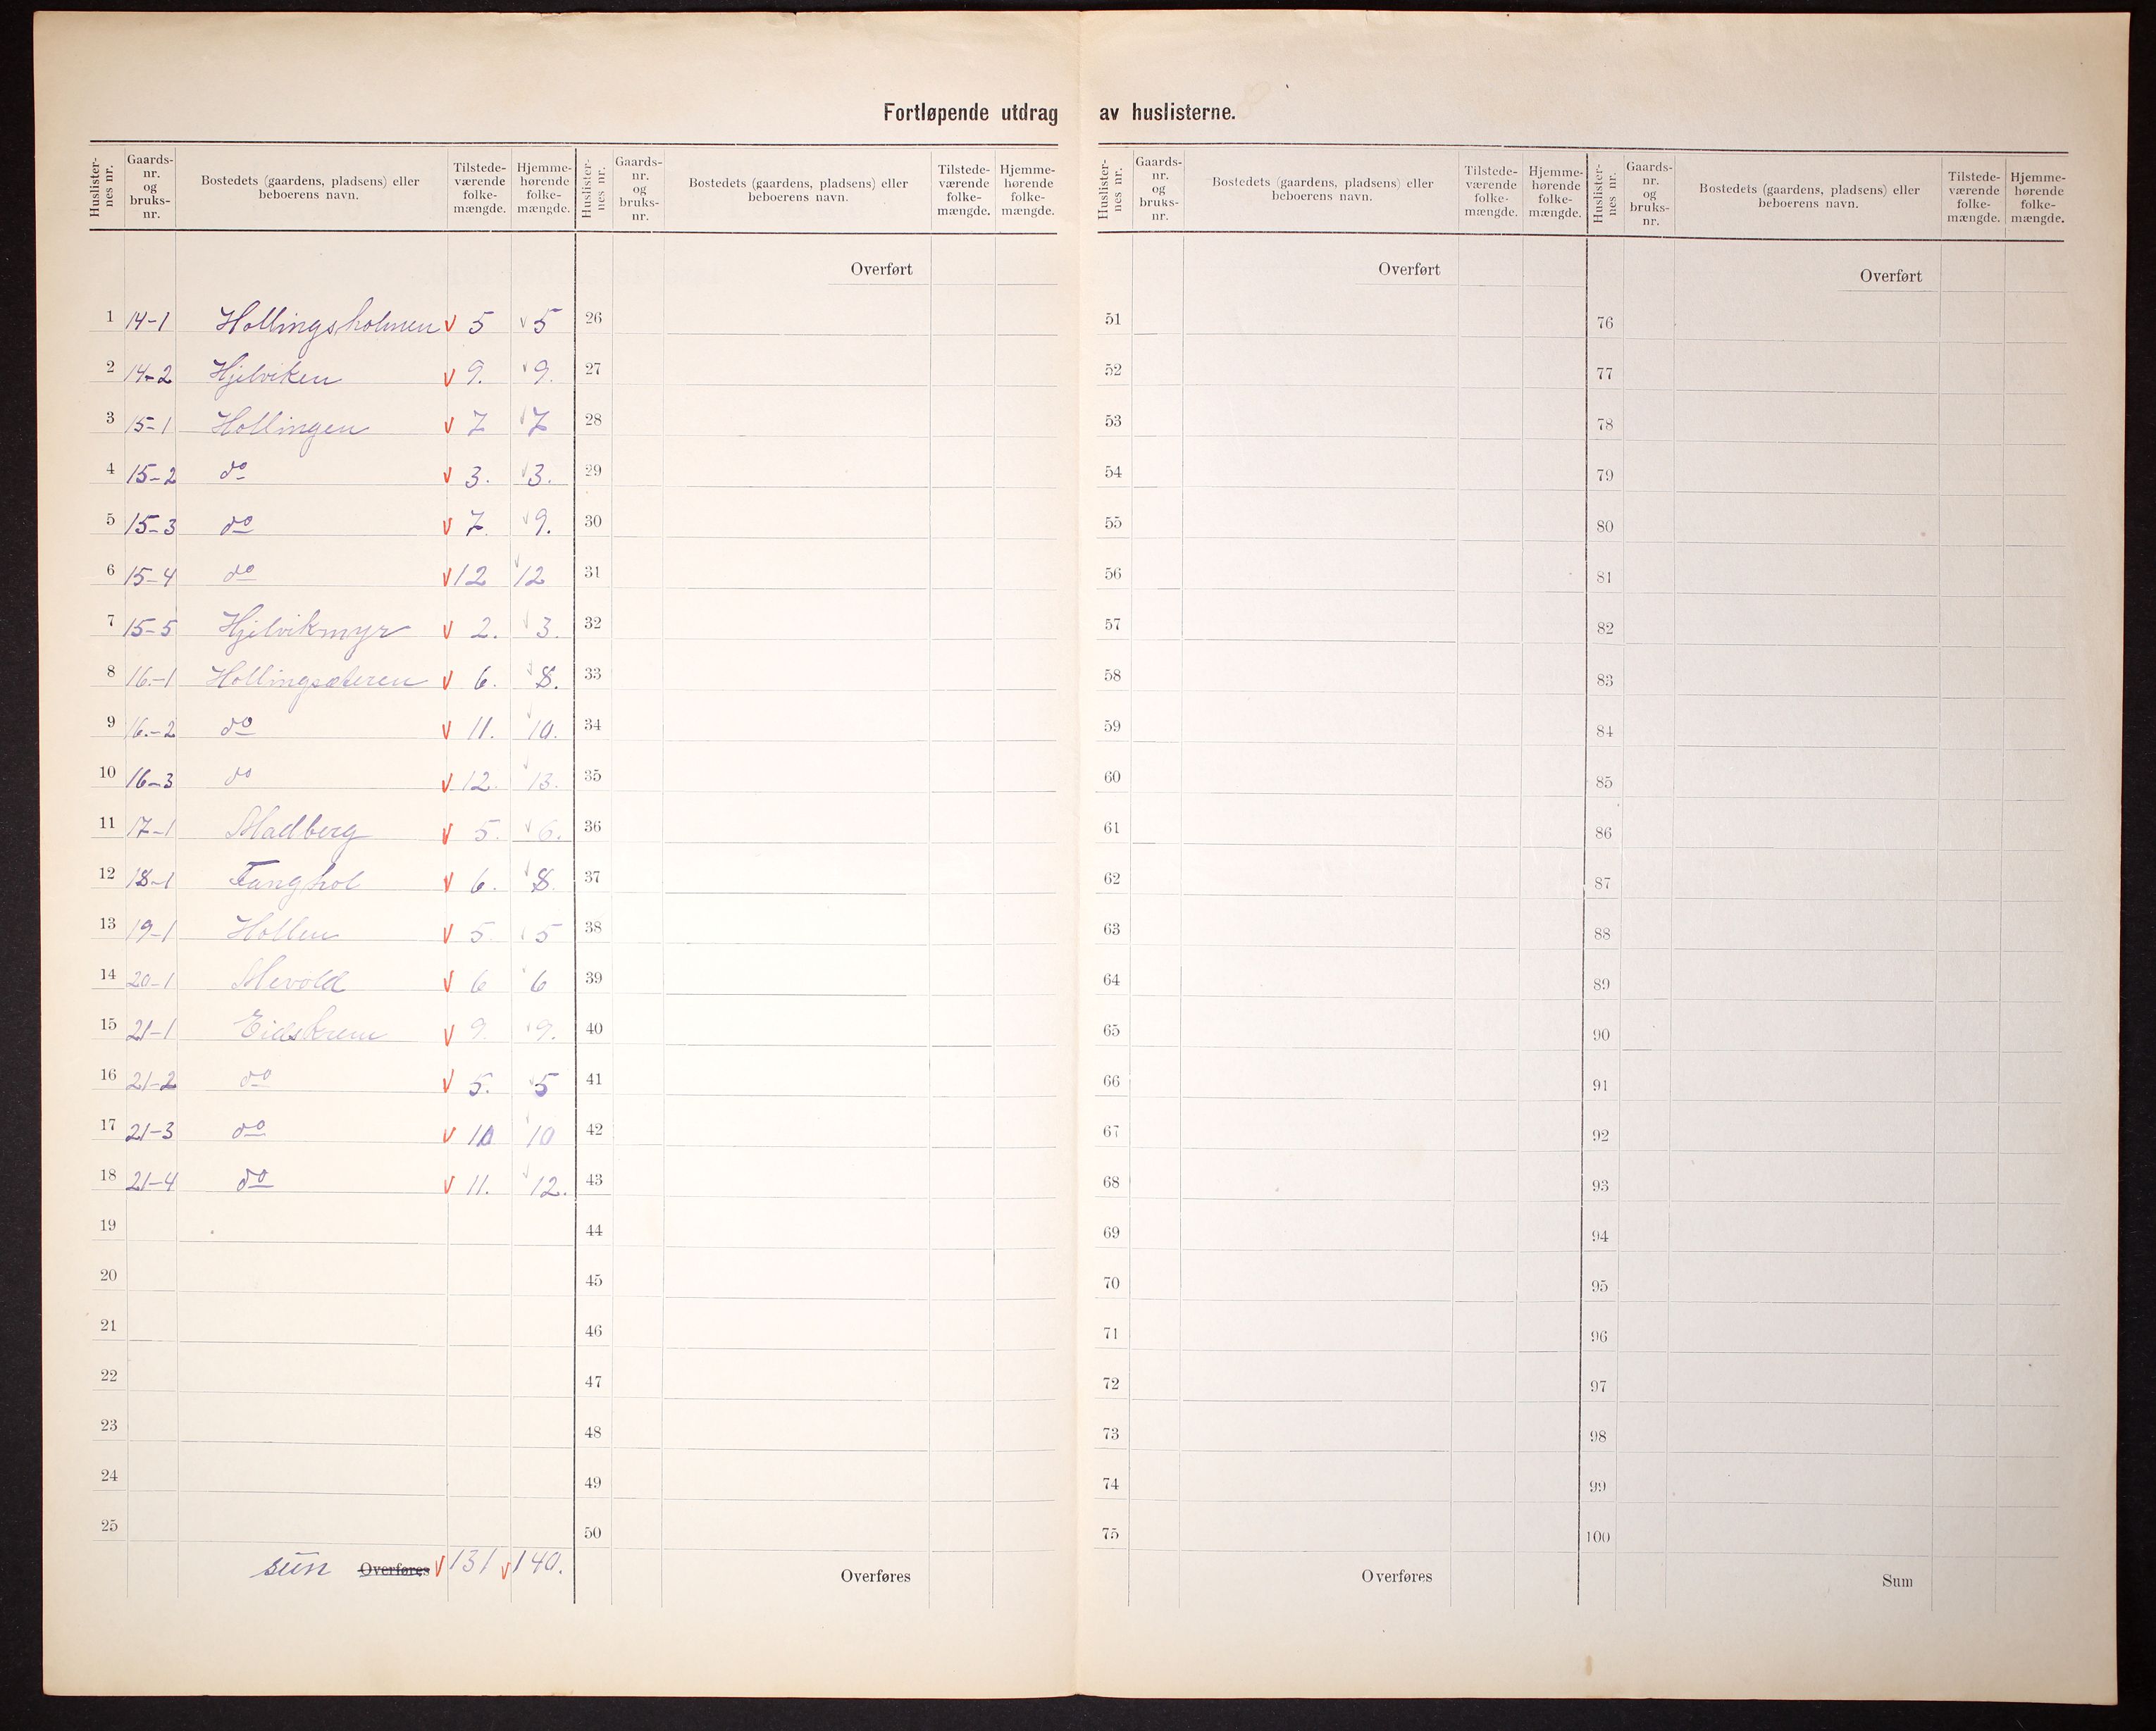 Fortløpende utdrag av huslisterne.
Huslister-nes nr. Gaards-nr. og bruks-nr. Bostedets (gaardens, pladsens) eller beboerens navn. Tilstede-værende folke-mængde. Hjemme-hørende folke-mængde.
1 14-1 Hollingsholmen v 5 v 5
2 14-2 Hjelviken v 9. v 9.
3 15-1 Hollingen v 7 v 7
4 15-2 do v 3. v 3.
5 15-3 do v 7. v 9.
6 15-4 do v 12 v 12
7 15-5 Hjelvikmyr v 2. v 3.
8 16-1 Hollingsæteren v 6. v 8.
9 16-2 do v 11. v 10.
10 16-3 do v 12. v 13.
11 17-1 Madberg v 5. v 6.
12 18-1 Tanghol v 6. v 8.
13 19-1 Hollen v 5 v 5
14 20-1 Mevold v 6 v 6
15 21-1 Eidskrem v 9. v 9.
16 21-2 do v 5. v 5
17 21-3 do v 10 v 10
18 21-4 do v 11. v 12.
19
20
21
22
23
24
25
sūn Overføres v 131 v 140.
Huslister-nes nr. Gaards-nr. og bruks-nr. Bostedets (gaardens, pladsens) eller beboerens navn. Tilstede-værende folke-mængde. Hjemme-hørende folke-mængde.
Overført
26
27
28
29
30
31
32
33
34
35
36
37
38
39
40
41
42
43
44
45
46
47
48
49
50
Overføres
Huslister-nes nr. Gaards-nr. og bruks-nr. Bostedets (gaardens, pladsens) eller beboerens navn. Tilstede-værende folke-mængde. Hjemme-hørende folke-mængde.
Overført
51
52
53
54
55
56
57
58
59
60
61
62
63
64
65
66
67
68
69
70
71
72
73
74
75
Overføres
Huslister-nes nr. Gaards-nr. og bruks-nr. Bostedets (gaardens, pladsens) eller beboerens navn. Tilstede-værende folke-mængde. Hjemme-hørende folke-mængde.
Overført
76
77
78
79
80
81
82
83
84
85
86
87
88
89
90
91
92
93
94
95
96
97
98
99
100
Sum